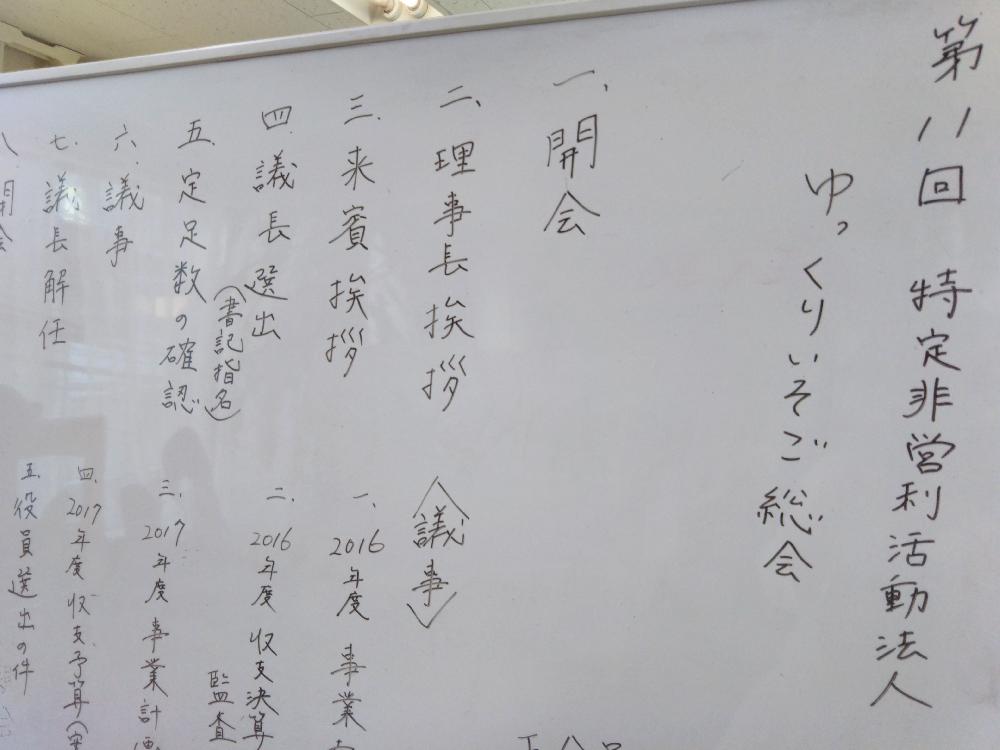 第11回 特定非営利活動法人
ゆっくりいそご総会
一、開会
二、理事長挨拶
三、来賓挨拶
四、議長選出
(書記指名)
五、定足数の確認
六、議事
七、議長解任
〈議事〉
一、2016年度 事業
二、2016年度 収支決算
監査
三、2017年度 事業計
四、2017年度 収支予算(案
五、役員選出の件